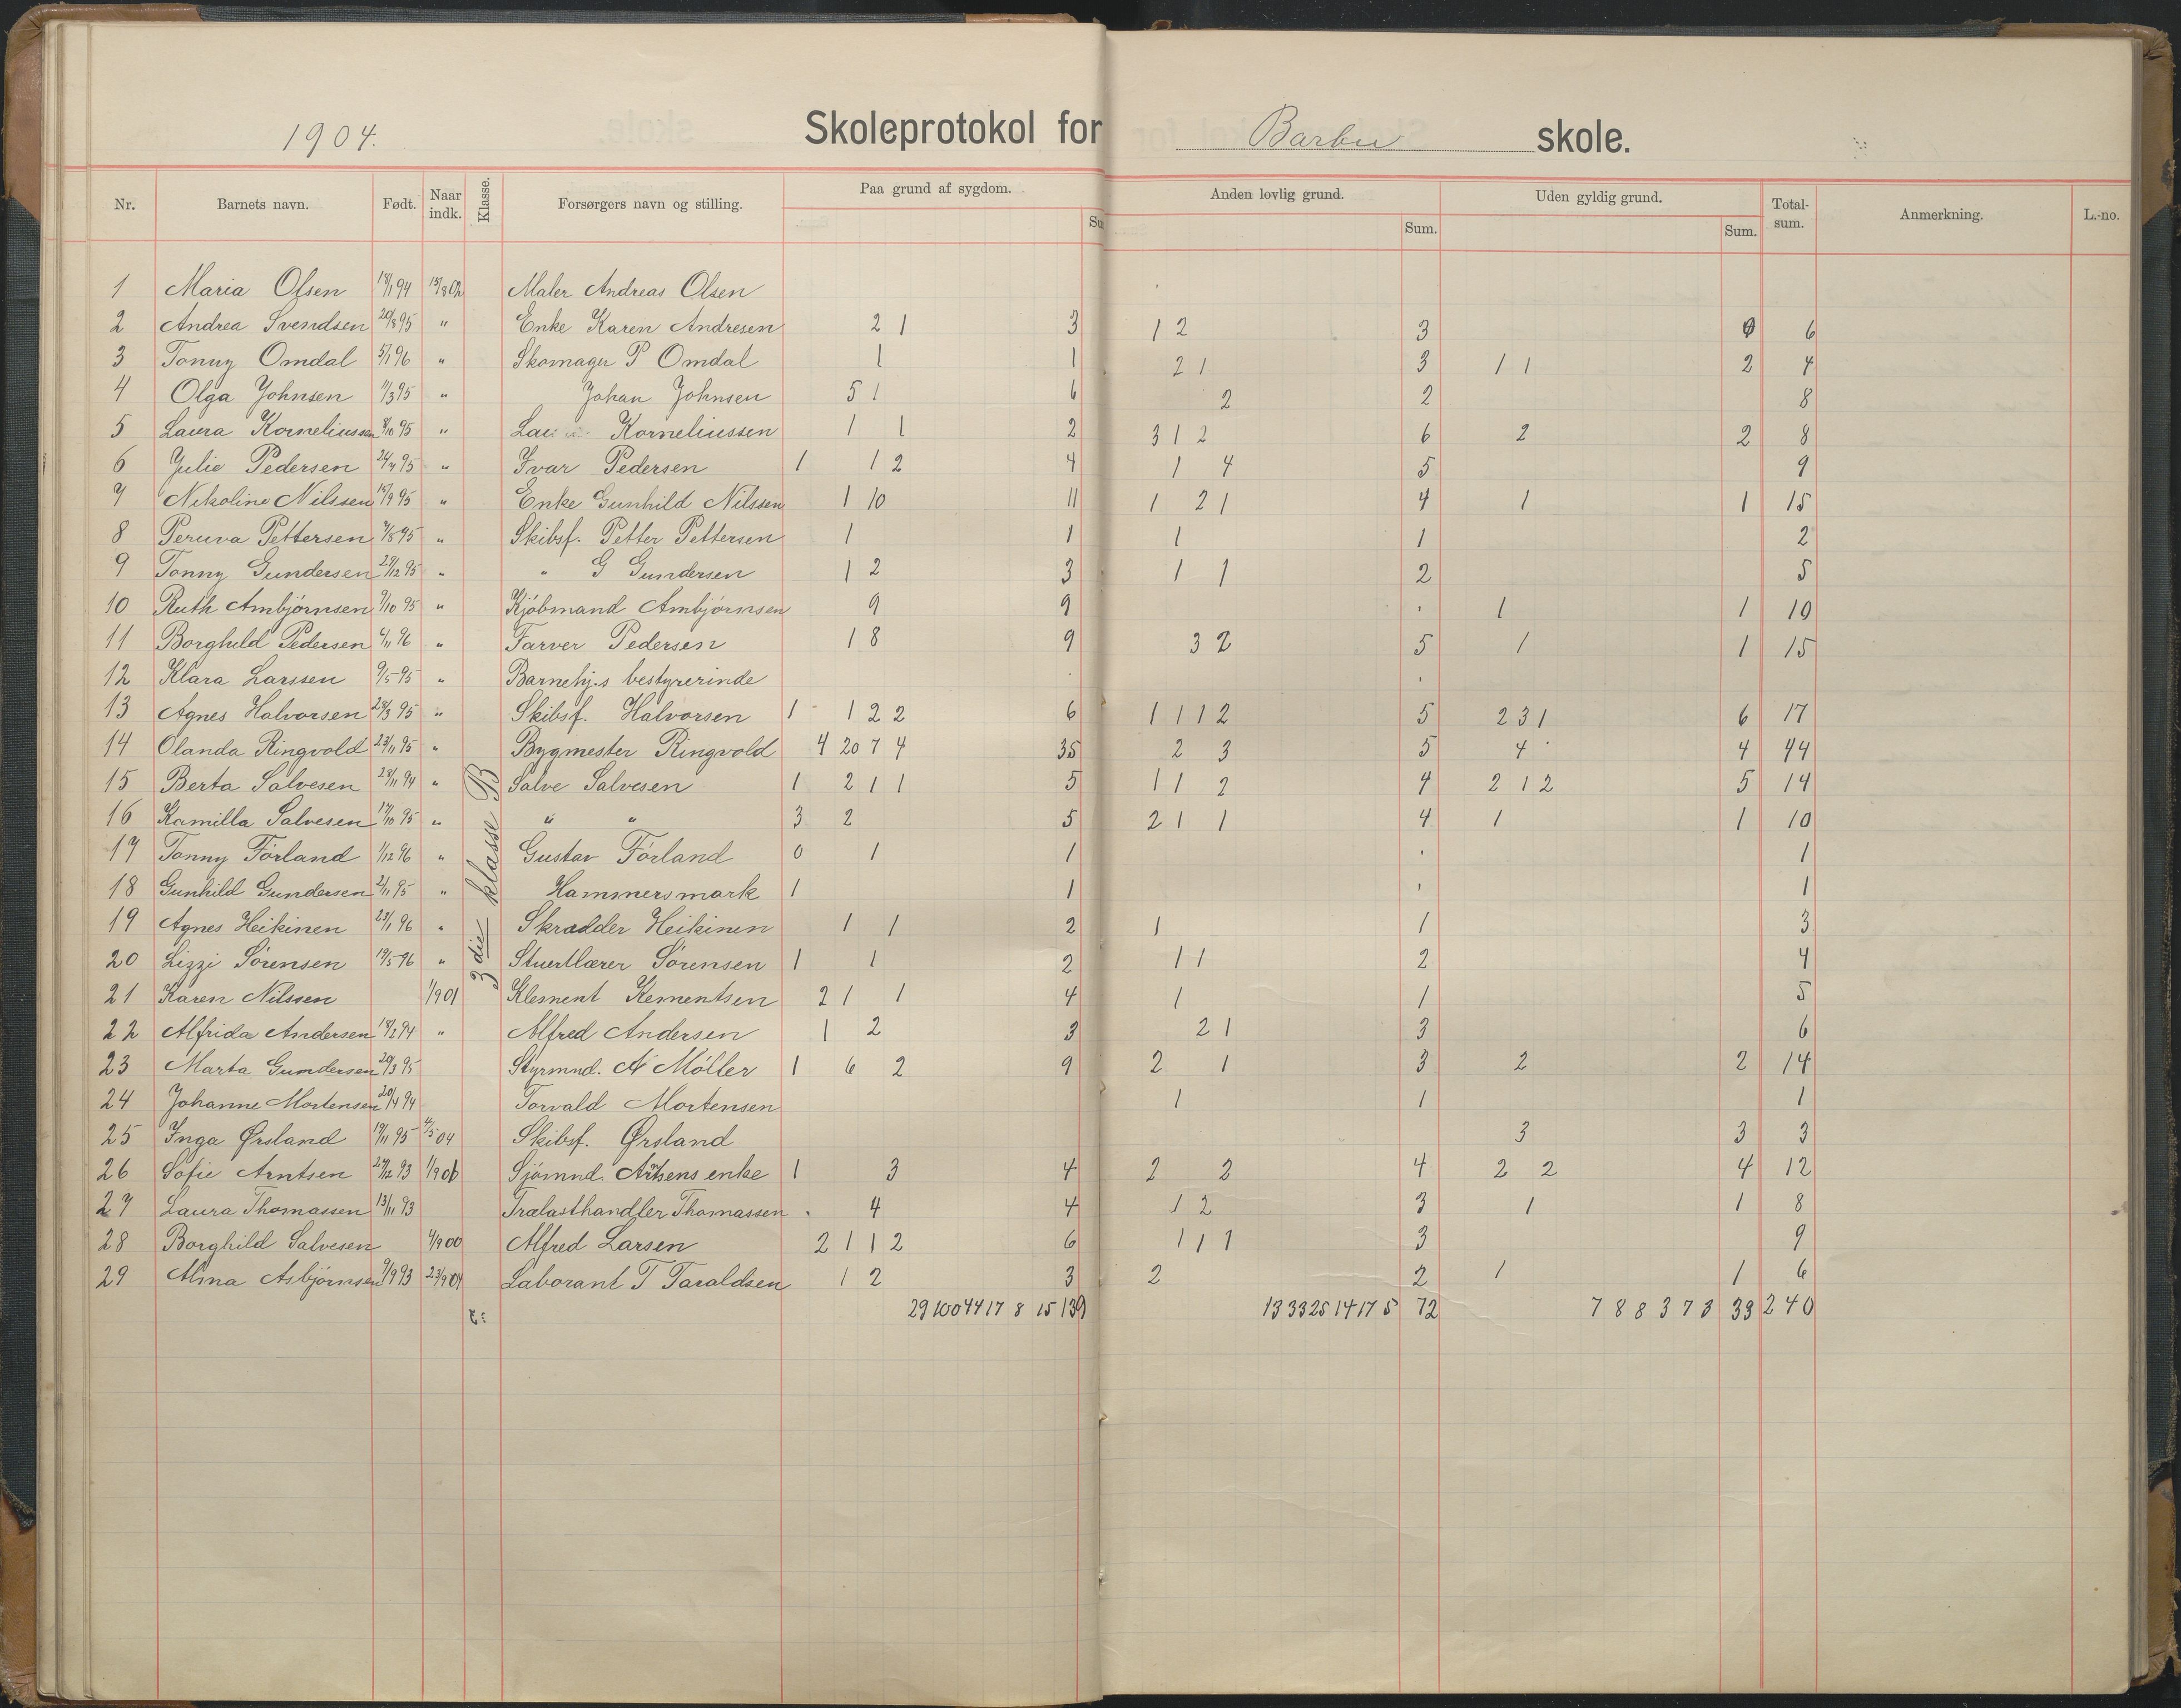 1904. Skoleprotokol for Barbu skole.
Nr. Barnets navn. Født. Naar indk. Klasse. Forsørgers navn og stilling. Paa grund af sygdom. Anden lovlig grund. Sum. Uden gyldig grund. Sum. Total-sum. Anmerkning. L.-no.
3 die klasse B
1 Maria Olsen Maler Andreas Olsen
2 Andrea Svendsen 20/8 95 " Enke Karen Andresen 2 1 3 1 2 3 0 6
3 Tonny Omdal 5/1 96 " Skomager P Omdal 1 1 2 1 3 1 1 2 7
4 Olga Johnsen 11/3 95 " Johan Johnsen 5 1 6 2 2 8
5 Laura Korneliussen 8/10 95 " Korneliussen 1 1 2 3 1 2 6 2 2 8
6 Julie Pedersen 24/4 95 " Ivar Pedersen 1 1 2 4 1 4 5 9
7 Nikoline Nilssen 15/9 95 " Enke Gunhild Nilssen 1 10 11 1 2 1 4 1 1 15
8 Peruva Pettersen " Skibsf. Petter Pettersen 1 1 1 1 2
9 Tonny Gundersen 29/12 95 " " G Gundersen 1 2 3 1 1 2 5
10 Ruth Ambjörnsen 9/10 95 " Kjöbmand Ambjörnsen 9 9 1 1 10
11 Borghild Pedersen " Farver Pedersen 1 8 9 3 2 5 1 1 15
12 Klara Larssen 9/5 95 " Barnehj.s bestyrerinde
13 Agnes Halvorsen 24/3 95 " Skibsf. Halvorsen 1 1 2 2 6 1 1 1 2 5 2 3 1 6 17
14 Olanda Ringvold 23/11 95 " Bygmester Ringvold 4 20 7 4 35 2 3 5 4 4 44
15 Berta Salvesen 28/11 94 " Salve Salvesen 1 2 1 1 5 1 1 2 4 2 1 2 5 14
16 Kamilla Salvesen 17/10 95 " " " 3 2 5 2 1 1 4 1 1 10
17 Tonny Förland 1/12 96 " Gustav Förland 0 1 1 1
18 Gunhild Gundersen 2/11 95 " Hammersmark 1 1 1
19 Agnes Heikinen 23/1 96 " Skrædder Heikinen 1 1 2 1 1 3
20 Lizzi Sörensen 19/5 96 " Stuertlærer Sörensen 1 1 2 1 1 2 4
21 Karen Nilssen 1/9 01 Klement Kementsen 2 1 1 4 1 1 5
22 Alfrida Andersen " Alfred Andersen 1 2 3 2 1 3 6
23 Marta Gundersen 20/3 95 Styrmnd. A Möller 1 6 2 9 2 1 3 2 2 14
24 Johanne Mortensen 20/4 94 Torvald Mortensen 1 1 1
25 Inga Ørsland 19/11 95 Skibsf. Ørsland 3 3 3
26 Sofie Arntsen Sjömnd. enke 1 3 4 2 2 4 2 2 4 12
27 Laura Thomassen 13/11 93 Trælasthandler Thomassen 4 4 1 2 3 1 1 8
28 Borghild Salvesen Alfred Larsen 2 1 1 2 6 1 1 1 3 9
29 Alma Asbjörnsen 9/9 93 Laborant T Taraldsen 1 2 3 2 2 1 1 6
29 100 44 17 8 15 139 13 33 25 14 17 5 72 7 8 8 3 7 3 33 240